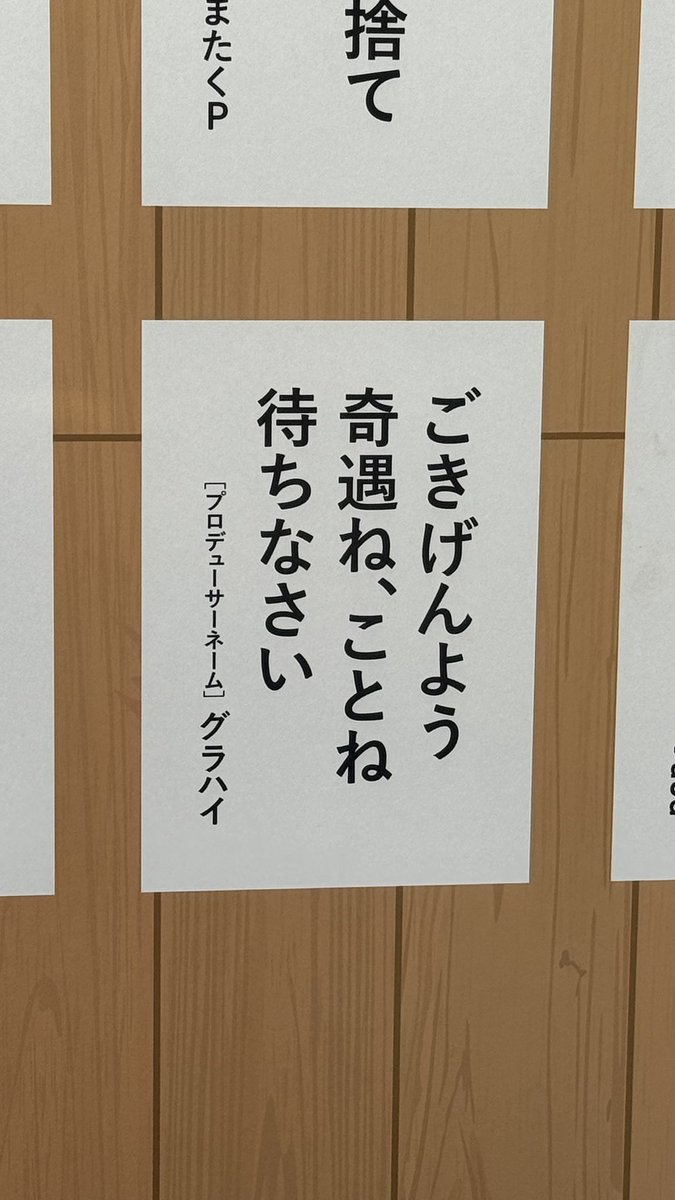 捨て
またくP
ごきげんよう
奇遇ね、ことね
待ちなさい
[プロデューサーネーム] グラハイ